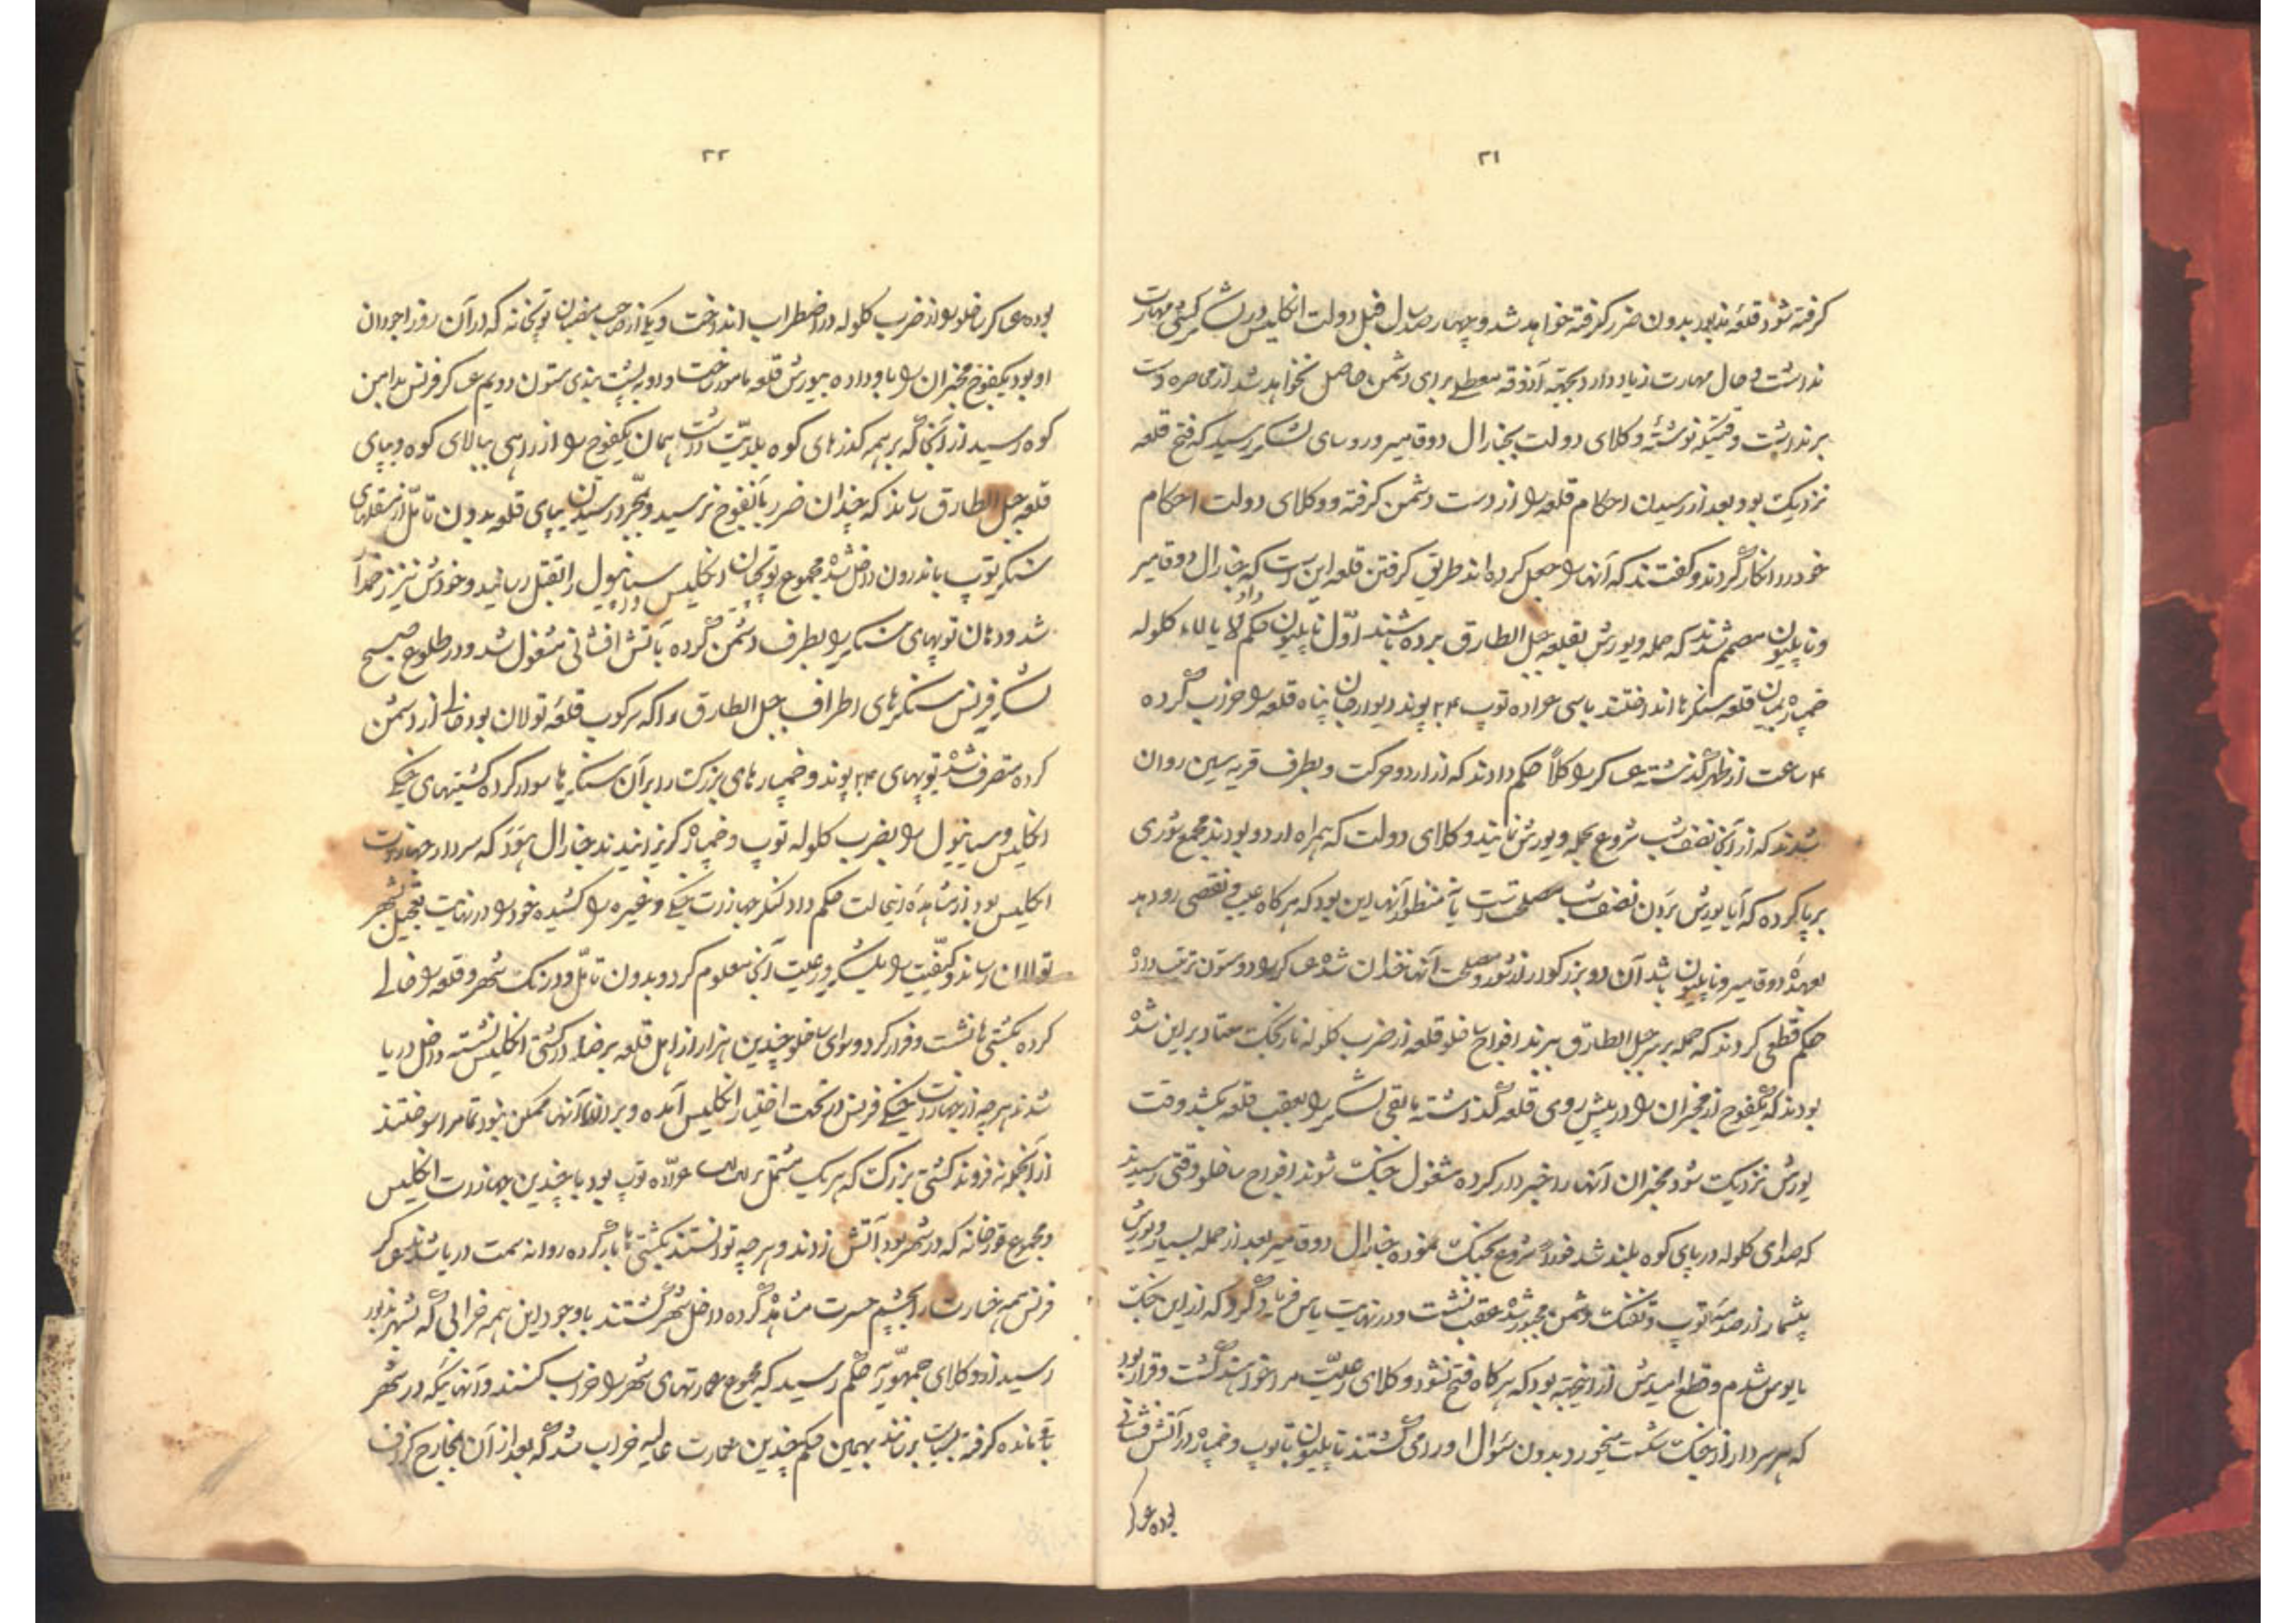 ۲۱
کرفته شود قلعه مذبور بدون ضرر کرفته خواهد شد و چهار صد سال قبل دولت انکلیس در لشکر کشی مهارت
نداشت و حال مهارت زیاد دارد بجهته آذوقه معطلی برای دشمن حاصل نخواهد شد از محاصره دست
برنداشت وقتیکه نوشته وکلای دولت بجنارال دوقامیر و روسای لشکر رسید که فتح قلعه
نزدیک بود بعد از رسیدن احکام قلعه را از دست دشمن کرفته و وکلای دولت احکام
خود را انکار کردند و کفتند که آنها را جعل کرده اند طریق کرفتن قلعه این است که جنارال دوقامیر
و ناپلیون مصمم شدند که حمله و یورش بقلعه جبل الطارق برده باشند اول ناپلیون حکم داد کلوله
خمپاره بمیان قلعه سنکرها انداختند با سی عراده توپ ۲۴ پوند دیوار جان پناه قلعه را خراب کرده
۴ ساعت از ظهر کذشته عساکر را کلاً حکم دادند که از اردو حرکت و بطرف قریه سین روان
شدند که از آنجا نصف شب شروع بحمله و یورش نمایند وکلای دولت که همراه اردو بودند مجمع شوری
برپا کرده که آیا یورش بردن نصف شب مصلحت است یا نه منظور آنها این بود که هرکاه عیب و نقصی رو دهد
بعهده دوقامیر و ناپلیون باشد آن دو بزرکوار از شور و مصلحت آنها خندان شده عساکر را دو ستون ترتیب داده
حکم قطعی کردند که حمله بر سر جبل الطارق ببرند افواج ساخلو قلعه از ضرب کلوله نارنجک معتاد بر این شده
بودند که یکفوج از مخبران را در پیش روی قلعه کذاشته باقی لشکر را بعقب قلعه بکشند وقت
یورش نزدیک شود مخبران آنها را خبردار کرده مشغول جنک شوند افواج ساخلو وقتی رسیدند
که صدای کلوله در پای کوه بلند شد فوراً شروع بجنک نموده جنارال دوقامیر بعد از حمله بسیار و یورش
بیشمار از صدمه توپ و تفنک دشمن مجبور شده عقب نشست و در نهایت یاس فریاد کرد که از این جنک
مایوس شدم و قطع امیدش از اینجهته بود که هرکاه فتح نشود وکلای رعیت مرا خواهند کشت و قرار بود
که هر سردار از جنک شکست میخورد بدون سوال او را می کشتند ناپلیون با توپ و خمپاره در آتش فشانی
بوده عساکر
۲۲
بوده عساکر ساخلو را از ضرب کلوله در اضطراب انداخت و یکی از صاحب منصبان توپخانه که در آن روز اجودان
او بود یکفوج مخبران را باو داده بیورش قلعه مامور ساخت و او به پشت بندی ستون دویم عساکر فرنس بدامن
کوه رسید از آنجا که بر همه کذرهای کوه بلدیت داشت همان یکفوج را از راهی ببالای کوه و بپای
قلعه جبل الطارق رساند که چندان ضرر بآنفوج نرسید و بمجرد رسیدن بپای قلعه بدون تامل از مزقلهای
سنکر توپ باندرون داخل شده مجموع توپچیان انکلیس و سپانیول را بقتل رسانید و خودش نیز زخمدار
شد و دهان توپهای سنکر را بطرف دشمن کرده بآتش افشانی مشغول شد و در طلوع صبح
لشکر فرنس سنکرهای اطراف جبل الطارق را که سرکوب قلعه تولان بود خالی از دشمن
کرده متصرف شده توپهای ۲۴ پوند و خمپارهای بزرک را بر آن سنکرها سوار کرده کشتیهای جنکی
انکلیس و سپانیول را بضرب کلوله توپ و خمپاره کریزانیدند جنارال هود که سردار جهازات
انکلیس بود از مشاهده اینحالت حکم داد لنکر جهازات جنکی و غیره را کشیده خود را در نهایت تعجیل بشهر
تولان رساند و کیفیت را بلشکر و رعیت آنجا معلوم کرد و بدون تامل و درنک شهر و قلعه را خالی
کرده بکشتی ها نشست و فرار کرد و سوای ساخلو چندین هزار از اهل قلعه برضا در کشتی انکلیس نشسته داخل دریا
شدند هرچه از جهازات جنکی فرنس در تحت اختیار انکلیس آمده و بردن آنها ممکن نبود تماما سوختند
از آنجمله فروند کشتی بزرک که هر یک مشتمل بر عراده توپ بود با چندین جهازات انکلیس
و مجموع قورخانه که در شهر بود آتش زدند و هرچه توانستند بکشتی ها بار کرده روانه سمت دریا شدند عساکر
فرنس همه خسارت را بچشم حسرت مشاهده کرده داخل شهر کشتند با وجود این همه خرابی که بشهر مذبور
رسید از وکلای جمهوریه حکم رسید که مجموع عمارتهای شهر را خراب کنند و آنهائیکه در شهر
باقی مانده کرفته بسیاست برسانند بهمین حکم چندین عمارت عالیه خراب شد که بعد از آن بمخارج کزاف